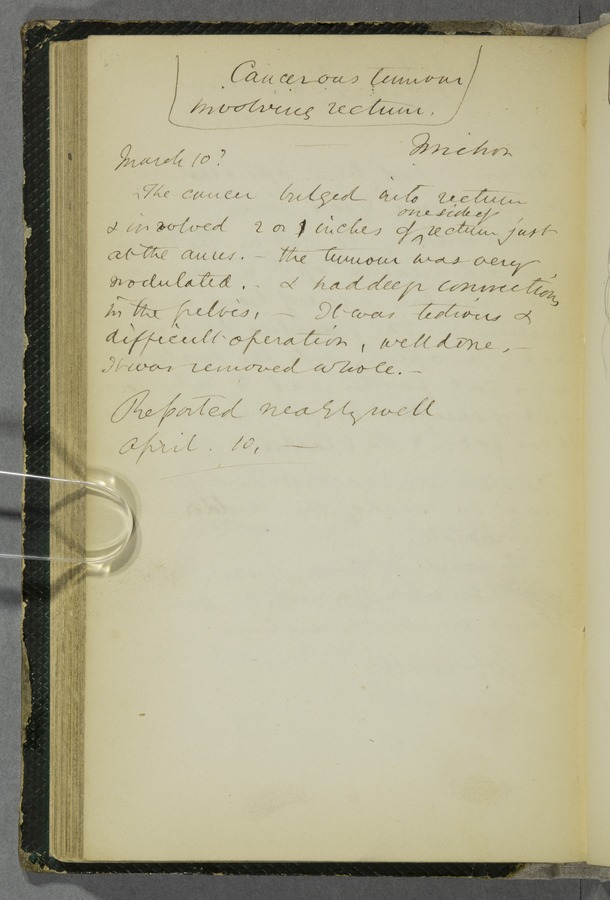 Cancerous tumour
involving rectum.
March 10? Michon
The cancer bulged into rectum
one side of
& involved 2 or 1 inches of rectum just
at the anus. - the tumour was very
nodulated. - & had deep connections
in the pelvis, - It was tedious &
difficult operation, well done, -
It was removed whole. -
Reported nearly well
April. 10, -